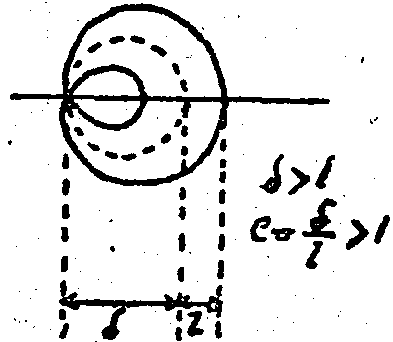 δ>l
e=δ/l>1
δ l